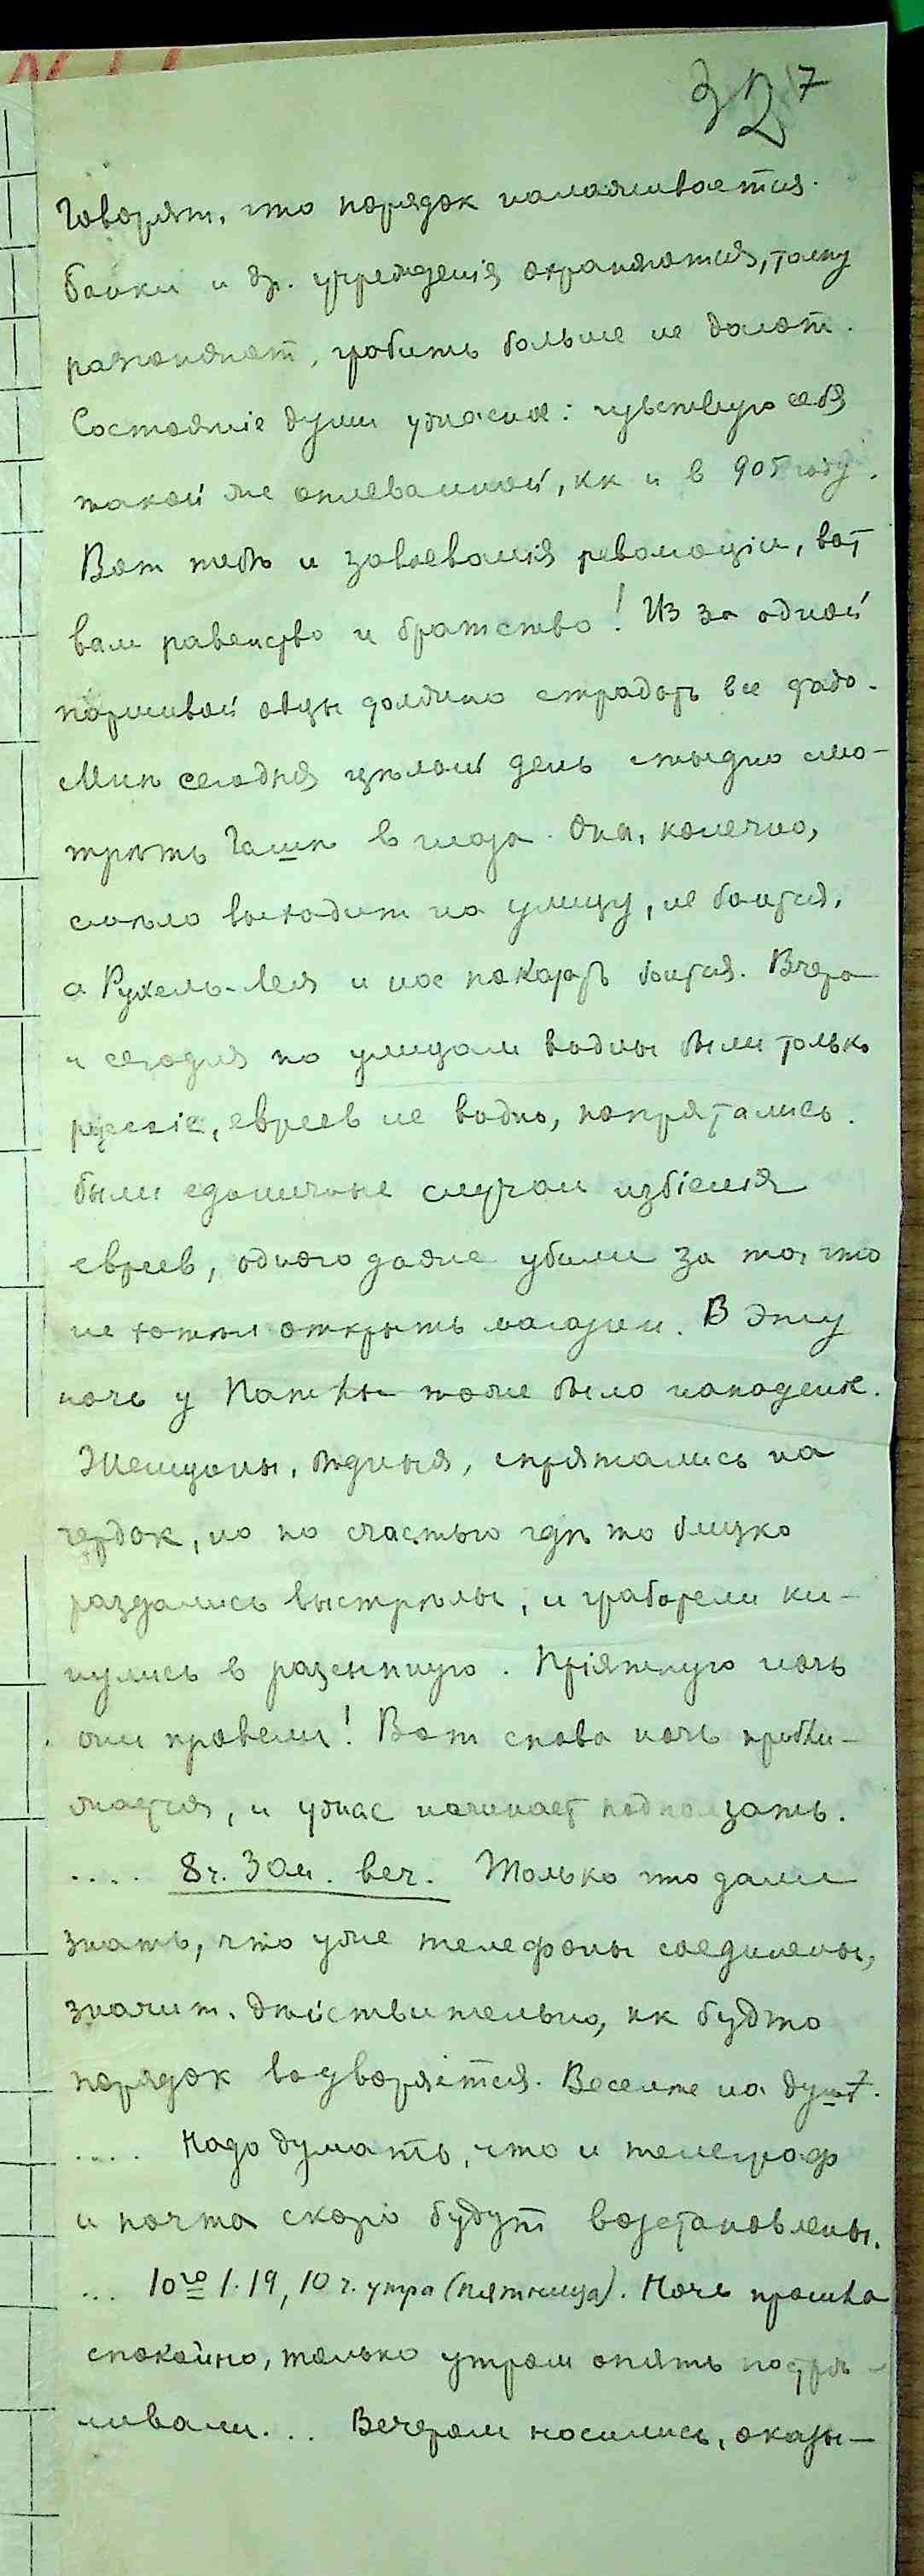 32 7
Говорят, что порядок налаживается.
Банки и др. учрежденія охраняются, толпу
разгоняют, грабить больше не дают.
Состояніе души ужасное: чувствую себя
такой же оплеванной, кк и в 905 году.
Вот тебѣ и завоеванія революціи, вот
вам равенство и братство! Из за одной
паршивой овцы должно страдать все стадо.
Мнѣ сегодня цѣлый день стыдно смо-
трѣть Гашѣ в глаза. Она, конечно,
смѣло выходит на улицу, не боится,
а Рухель-Лея и нос показать боится. Вчера
и сегодня по улицам видны были только
русскіе, евреев не видно, попрятались.
Были единичные случаи избіенія
евреев, одного даже убили за то, что
не хотѣл открыть магазин. В эту
ночь у Паткы тоже было нападеніе.
Женщины, бѣдныя, спрятались на
чердак, но по счастью гдѣ то близко
раздались выстрѣлы, и грабители ки-
нулись в разсыпную. Пріятную ночь
они провели! Вот снова ночь прибли-
жается, и ужас начинает подползать.
.... 8 ч. 30 м. веч. Только что дали
знать, что уже телефоны соединены,
значит, дѣйствительно, кк будто
порядок водворяется. Веселѣе на душѣ.
.... Надо думать, что и телеграф
и почта скоро будут возстановлены.
... 10го 1.19, 10 ч. утра (пятница). Ночь прошла
спокойно, только утром опять постре-
ливали... Вечером носились, оказы-